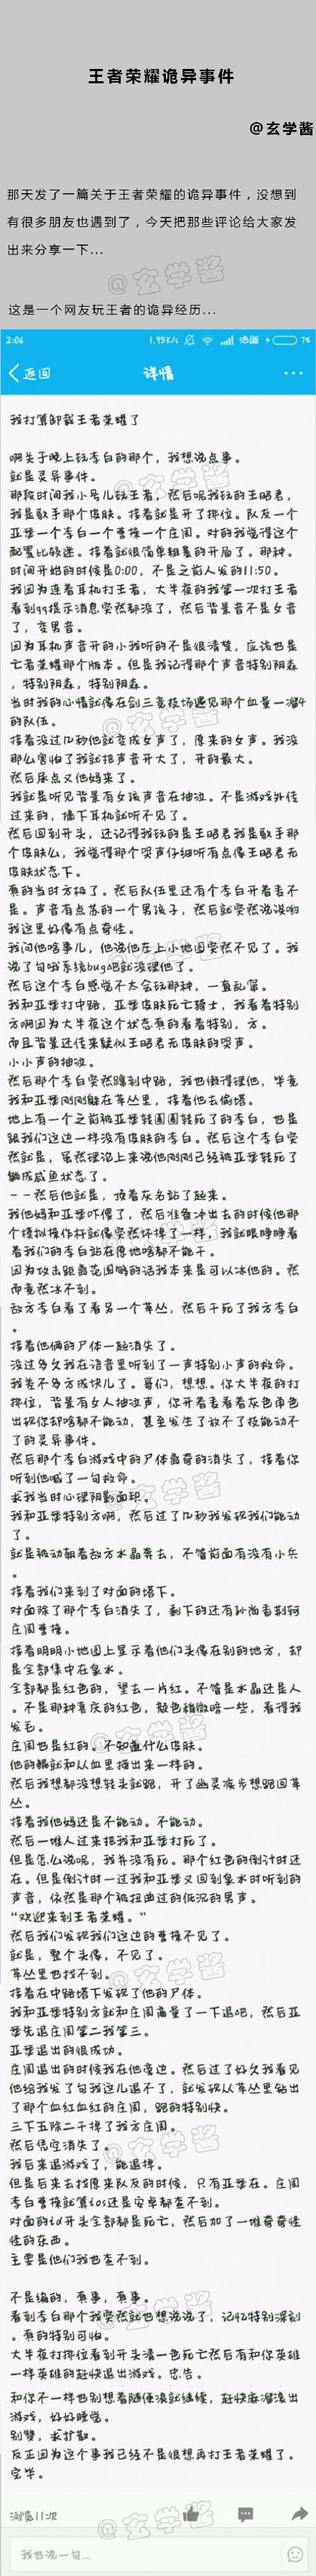 王者荣耀诡异事件
@玄学酱
那天发了一篇关于王者荣耀的诡异事件，没想到
有很多朋友也遇到了，今天把那些评论给大家发
出来分享一下...
@玄学酱
这是一个网友玩王者的诡异经历...
2:06
1.95K/s
7%
返回
详情
我打算卸载王者荣耀了
啊关于晚上玩李白的那个，我想说点事。
就是灵异事件。
那段时间我小号儿玩王者，然后呢我玩的王昭君，
我是歌手那个皮肤。接着就是开了排位。队友一个
亚瑟一个李白一个曹操一个庄周。对的我觉得这个
配置比较迷。接着就很简单粗暴的开局了。那种。
时间开始的时候是0:00，不是之前人发的11:50。
我因为连着耳机打王者，大半夜的我第一次打王者
看到qq提示消息突然都没了，然后背景音不是女音
了，变男音。
因为耳机声音开的小我听的不是很清楚，应该也是
亡者荣耀那个版本。但是我记得那个声音特别阴森
，特别阴森，特别阴森。
当时我的心情就像在剑三竞技场遇见那个血量一溜4
的队伍。
接着没过几秒他就变成女声了，原来的女声。我没
那么害怕了我就把声音开大了，开的最大。
然后尿点又他妈来了。
我就是听见背景有女孩声音在抽泣。不是游戏外传
过来的，摘下耳机就听不见了。
然后回到开头，还记得我玩的是王昭君我是歌手那
个皮肤么，我觉得那个哭声仔细听有点像王昭君无
皮肤状态下。
真的当时方极了。然后队伍里还有个李白开着麦不
是。声音有点苏的一个男孩子，然后就突然说诶哟
我这里好像有点奇怪。
我问他啥事儿，他说他在上小地图突然不见了。我
说了句哦系统bug吧就没理他了。
然后这个李白感觉不太会玩那种，一直乱窜。
我和亚瑟打中路，亚瑟皮肤死亡骑士，我看着特别
方啊因为大半夜这个状态真的看着特别，方。
而且背景还传来疑似王昭君无皮肤的哭声。
小小声的抽泣。
然后那个李白突然蹿到中路，我也懒得理他，毕竟
我和亚瑟刚刚躲在草丛里，接着他去偷塔。
地上有一个之前被亚瑟转圈圈转死了的李白，也是
跟我们这边一样没有皮肤的李白。然后这个李白突
然就是，虽然理论上来说他刚刚已经被亚瑟转死了
躺成咸鱼状态了。
--然后他就是，顶着灰名站了起来。
我他妈和亚瑟吓傻了，然后准备冲出去的时候他那
个模拟操作杆就像突然坏掉了一样，我就眼睁睁看
着我们的李白站在原地啥都不能干。
因为攻击距离范围够的话我本来是可以冰他的。然
而竟然冰不到。
敌方李白看了看另一个草丛，然后干死了我方李白
。
接着他俩的尸体一起消失了。
没过多久我在语音里听到了一声特别小声的救命。
我差不多方成块儿了。哥们，想想。你大半夜的打
排位，背景有女人抽泣声，你开着麦看着灰色角色
出现你却啥都不能动，甚至发生了放不了技能动不
了的灵异事件。
然后那个李白游戏中的尸体离奇的消失了，接着你
听到他喊了一句救命。
求我当时心理阴影面积。
我和亚瑟特别方啊，然后过了几秒我发现我们能动
了。
就是被动朝着敌方水晶奔去，不管前面有没有小兵
。
接着我们来到了对面的塔下。
对面除了那个李白消失了，剩下的还有孙尚香荆轲
庄周曹操。
接着明明小地图上显示着他们头像在别的地方，却
是全部集中在泉水。
全部都是红色的，望去一片红。不管是水晶还是人
。不是那种喜庆的红色，颜色稍微暗一些，看得我
发毛。
庄周也是红的。不知道什么皮肤。
他的鲲就和从血里捞出来一样的。
然后我想都没想转头就跑，开了幽灵疾步想跑回草
丛。
接着我他妈还是不能动。不能动。
然后一堆人过来把我和亚瑟打死了。
但是怎么说呢，我并没有死。那个红色的倒计时还
在。但是倒计时一过我和亚瑟又回到泉水时听到的
声音，依然是那个被扭曲过的低沉的男声。
“欢迎来到王者荣耀。”
然后我们发现我们这边的曹操不见了。
就是，整个头像，不见了。
草丛里也找不到。
接着在中路塔下发现了他的尸体。
我和亚瑟特别方就和庄周商量了一下退吧，然后亚
瑟先退庄周第二我第三。
亚瑟退出的很成功。
庄周退出的时候我在他旁边。然后过了好久我看见
他给我发了句我这儿退不了，就发现从草丛里钻出
了那个血红血红的庄周，跑的特别快。
三下五除二干掉了我方庄周。
然后凭空消失了。
我后来退游戏了，能退掉。
但是后来去找原来队友的时候，只有亚瑟在。庄周
李白曹操就算ios还是安卓都查不到。
对面的id开头全部都是死亡，然后加了一堆奇奇怪
怪的东西。
主要是他们我也查不到。
不是编的，真事，真事。
看到李白那个我突然就也想说说了，记忆特别深刻
。真的特别可怕。
大半夜打排位看到开头清一色死亡然后有和你英雄
一样英雄的赶快退出游戏。忠告。
和你不一样也别想着随便浪就继续，赶快麻溜滚出
游戏，好好睡觉。
别赞，求扩散。
反正因为这个事我已经不是很想再打王者荣耀了。
完毕。
浏览11次
我也说一句...